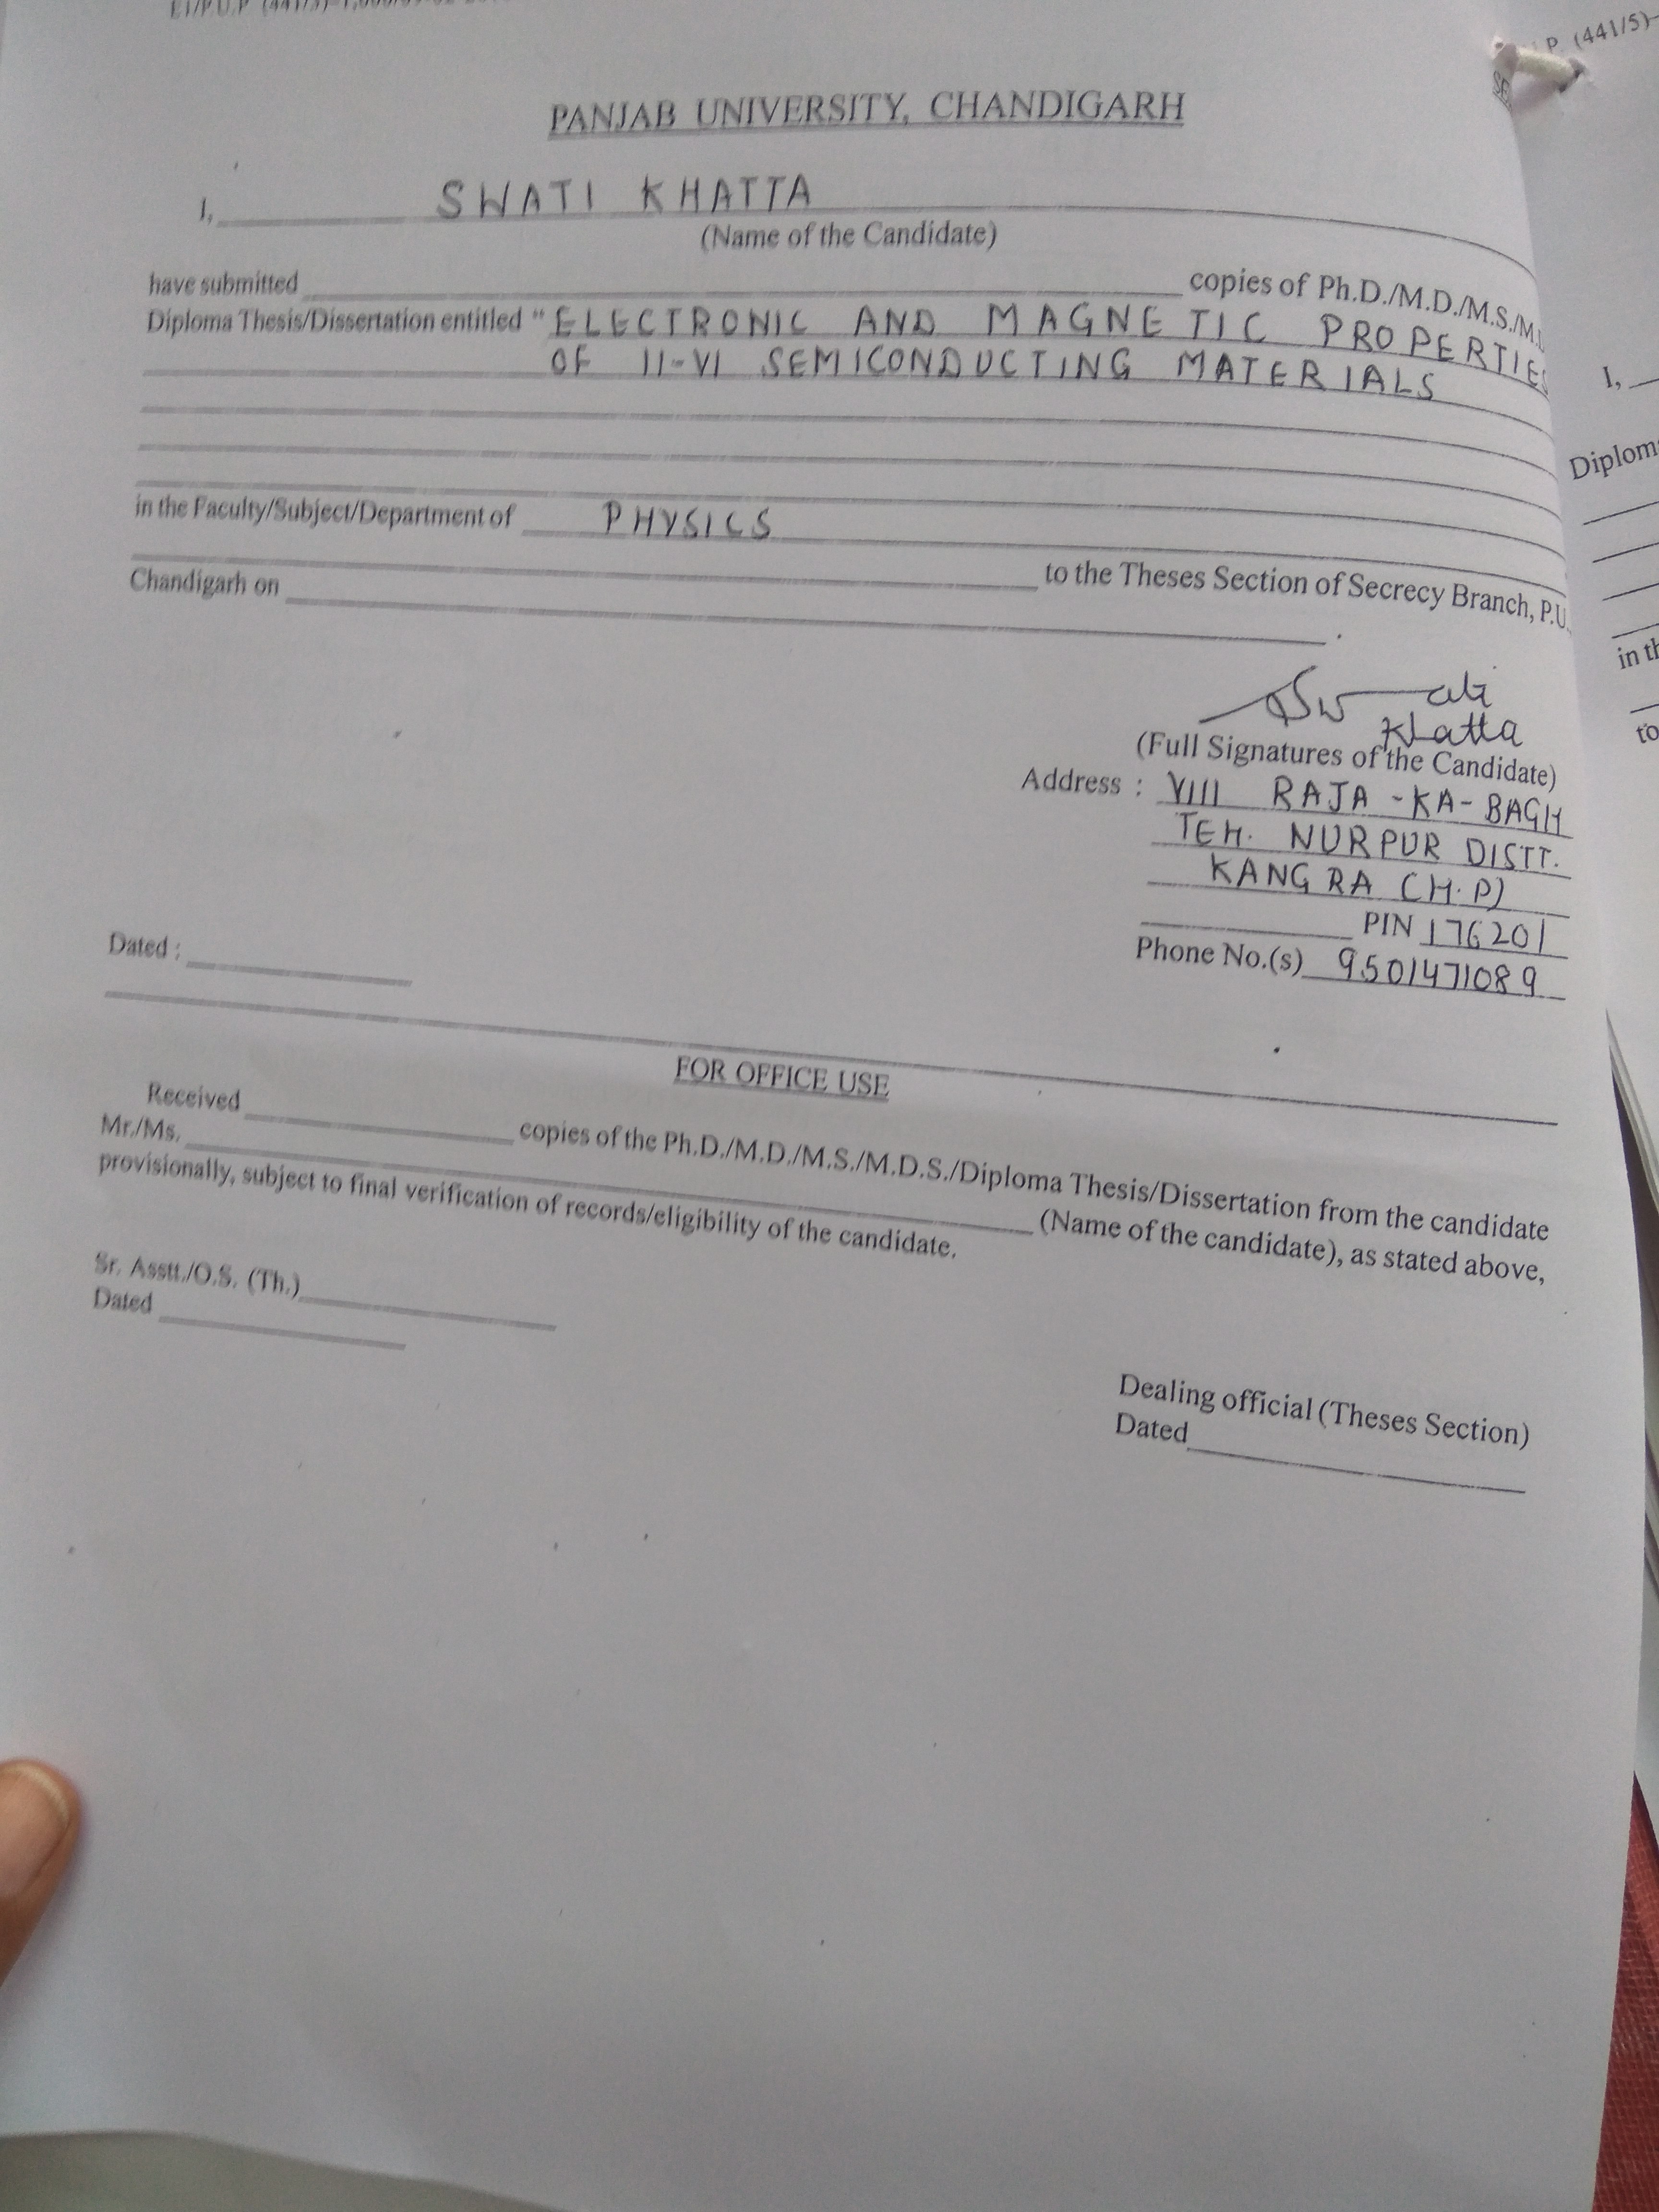 P. (441/5)-
PANJAB UNIVERSITY, CHANDIGARH
I, SWATI KHATTA
(Name of the Candidate)
have submitted copies of Ph.D./M.D./M.S./M.
Diploma Thesis/Dissertation entitled "ELECTRONIC AND MAGNETIC PROPERTIES
OF II-VI SEMICONDUCTING MATERIALS
in the Faculty/Subject/Department of PHYSICS
to the Theses Section of Secrecy Branch, P.U.,
Chandigarh on .
Swati
Khatta
(Full Signatures of the Candidate)
Address : VIII RAJA-KA-BAGH
TEH. NURPUR DISTT.
KANGRA (H.P)
PIN 176201
Phone No.(s) 9501471089
Dated :
FOR OFFICE USE
Received copies of the Ph.D./M.D./M.S./M.D.S./Diploma Thesis/Dissertation from the candidate
Mr./Ms. (Name of the candidate), as stated above,
provisionally, subject to final verification of records/eligibility of the candidate.
Sr. Asstt./O.S. (Th.)
Dated
Dealing official (Theses Section)
Dated
I,
Diplom
in th
to